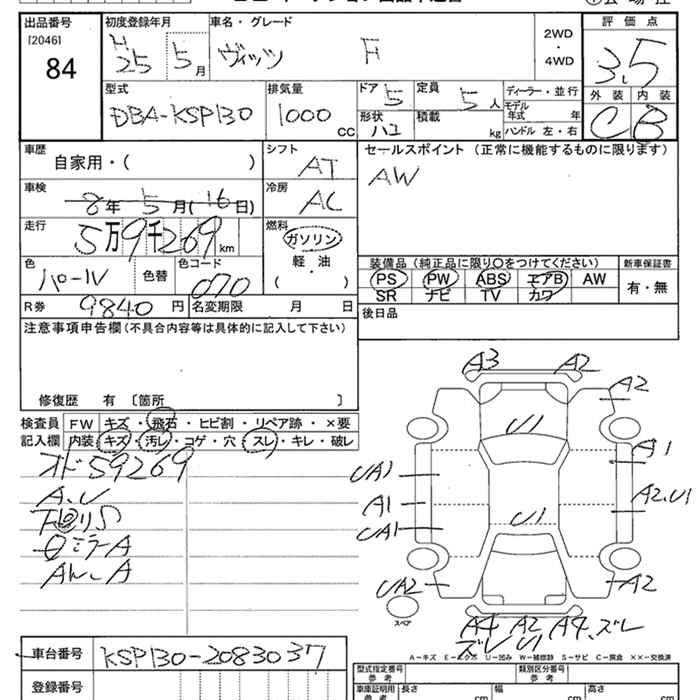 出品番号 初度登録年月 車名・グレード 評価点
[2046] H 2WD
84 25 5月 ヴィッツ F ・4WD 3.5
外装 内装
型式 排気量 ドア 定員 ディーラー・並行 C B
DBA-KSP130 1000cc 5 5人 モデル年式 年
形状 積載
ハコ kg ハンドル 左・右
車歴 シフト セールスポイント (正常に機能するものに限ります)
自家用・( ) AT AW
車検 冷房
8年5月(16日) AC
走行 燃料
5万9千269km ガソリン
色 色替 色コード 軽・油 装備品 (純正品に限り○をつけてください) 新車保証書
パール 070 ( ) PS PW ABS エアB AW 有・無
SR ナビ TV カワ
R券 9840円 名変期限 月 日 後日品
注意事項申告欄 (不具合内容等は具体的に記入して下さい)
修復歴 有 〔箇所 〕
検査員 FW キズ・飛石・ヒビ割・リペア跡・×要
記入欄 内装 キズ・汚レ・コゲ・穴・スレ・キレ・破レ
オド59269
A、U
ミラーA
A3 A2
A2
U1
A1
UA1
A2.U1
A1
UA1 U1
UA2 A2
スペア
A4 A2 A4.ズレ
ズレ U1
A-キズ E-エクボ U-凹み W-補修跡 S-サビ C-腐食 ××-交換済
車台番号 KSP130-2083037
登録番号
型式指定番号 参考 類別区分番号 参考
車庫証明用 参考 長さ cm 幅 cm 高さ cm